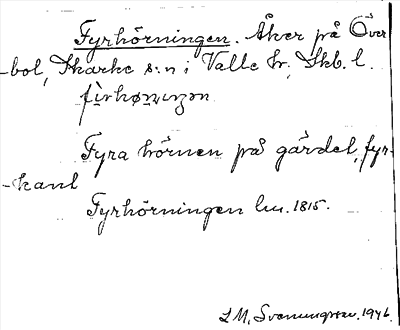 Fyrhörningen. Åker på Över
-bol, Skarke s:n i Valle hr, Skb. l.
Fyra hörnen på gärdet, fyr-
-kant
Fyrhörningen lm. 1815.
L M, Svanungsson. 1946.